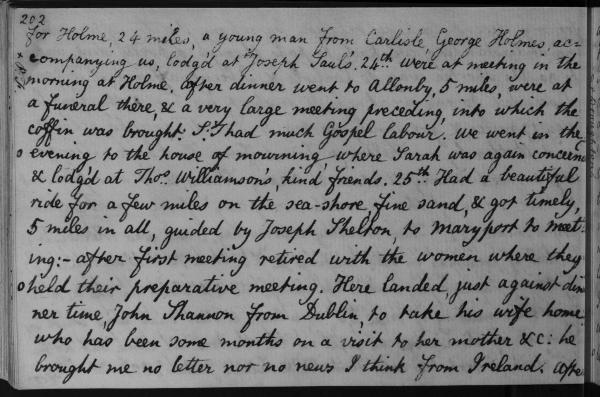 202
for Holme, 24 miles, a young man from Carlisle, George Holmes, ac=
companying us, lodg'd at Joseph Saul's. 24.th were at meeting in the
morning at Holme, after dinner went to Allonby, 5 miles, were at
a funeral there, & a very large meeting preceding, into which the
coffin was brought: S:T had much Gospel labour. We went in the
evening to the house of mourning where Sarah was again concern
& lodg'd at Thos. Williamson's, kind friends. 25.th Had a beautiful
ride for a few miles on the sea-shore fine sand, & got timely,
5 miles in all, guided by Joseph Shelton to Maryport to meet-
ing:- after first meeting retired with the women where they
held their preparative meeting. Here landed, just against din
ner time, John Shannon from Dublin, to take his wife home
who has been some months on a visit to her mother &c: he
brought me no letter nor no news I think from Ireland. Afte